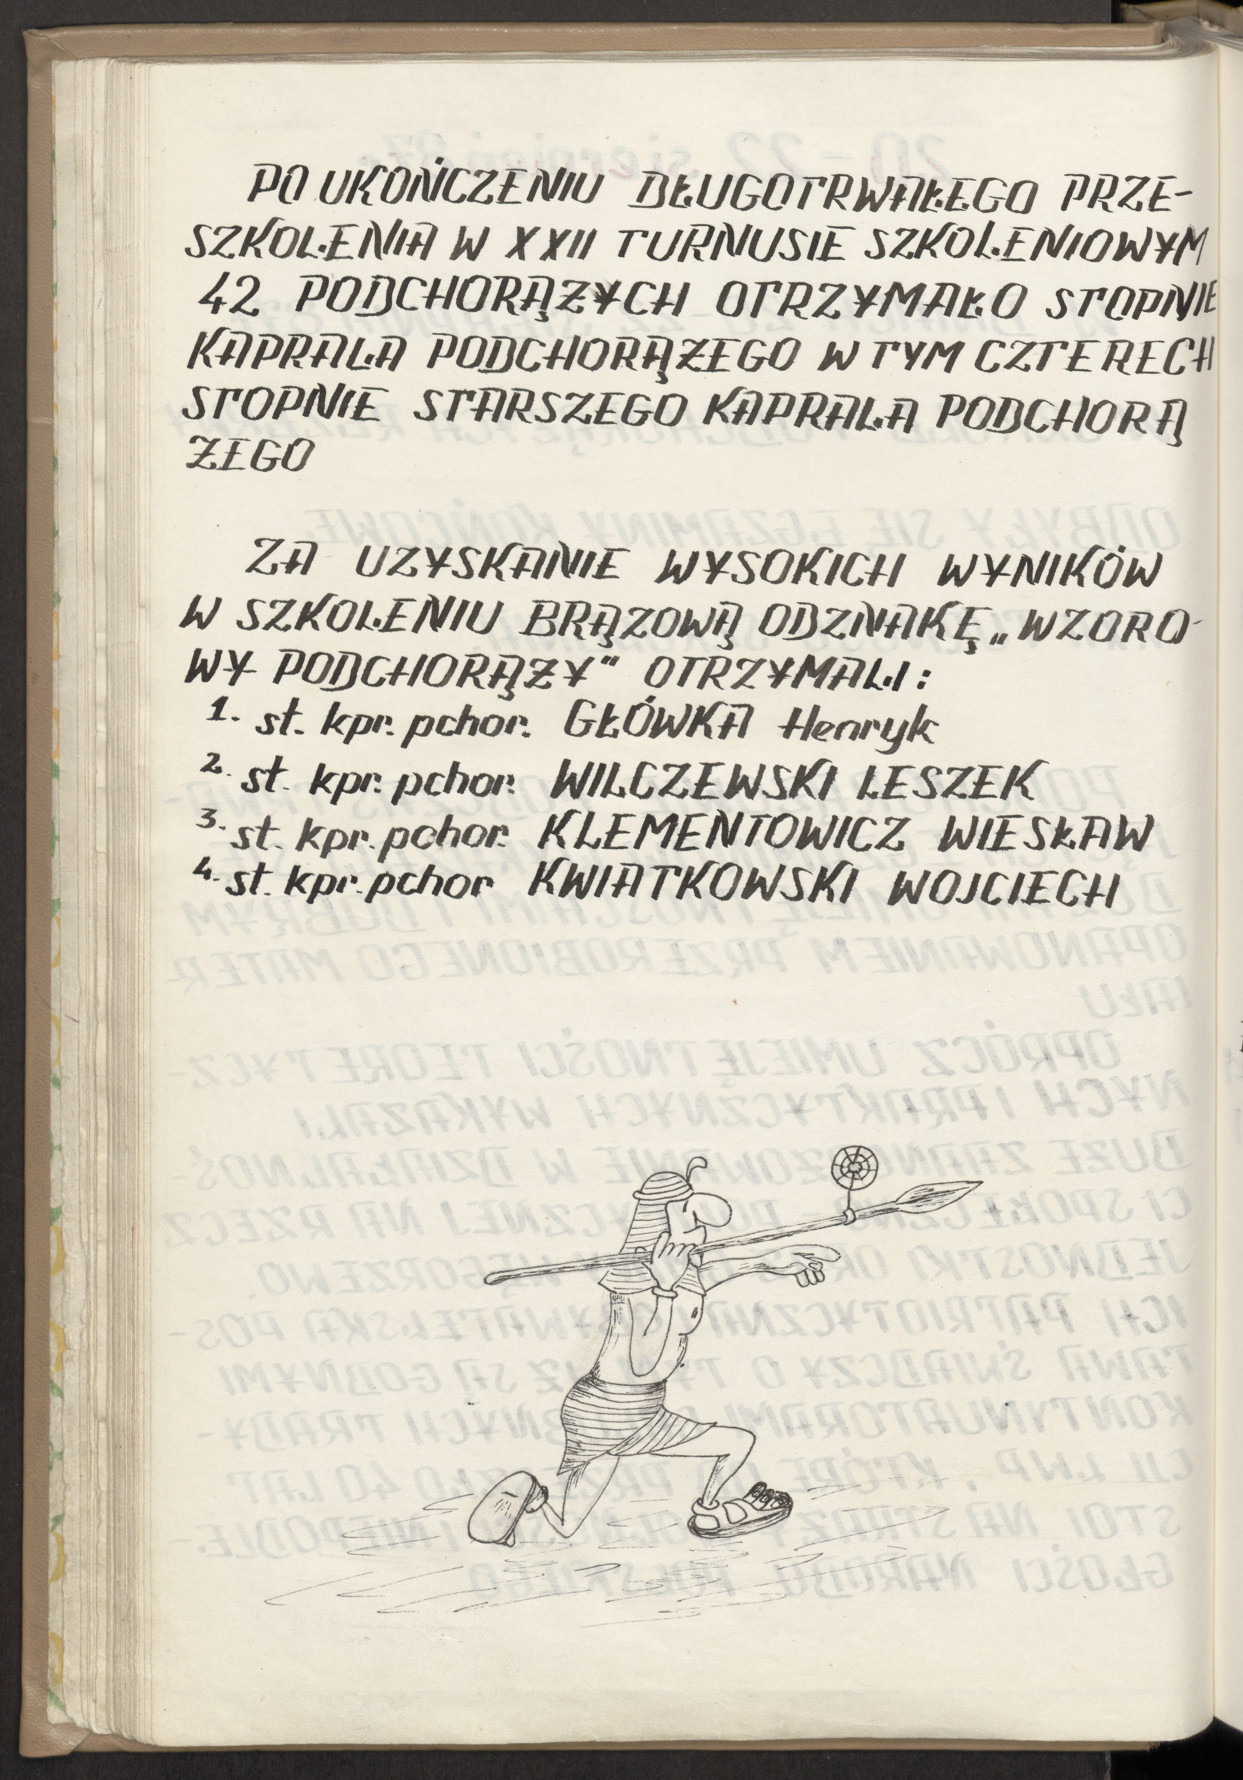 PO UKOŃCZENIU DŁUGOTRWAŁEGO PRZE-
SZKOLENIA W XXII TURNUSIE SZKOLENIOWYM
42 PODCHORĄŻYCH OTRZYMAŁO STOPNIE
KAPRALA PODCHORĄŻEGO W TYM CZTERECH
STOPNIE STARSZEGO KAPRALA PODCHORĄ
ŻEGO
ZA UZYSKANIE WYSOKICH WYNIKÓW
W SZKOLENIU BRĄZOWĄ ODZNAKĘ „WZORO-
WY PODCHORĄŻY" OTRZYMALI:
1. st. kpr. pchor. GŁÓWKA Henryk
2. st. kpr. pchor. WILCZEWSKI LESZEK
3. st. kpr. pchor. KLEMENTOWICZ WIESŁAW
4. st. kpr. pchor KWIATKOWSKI WOJCIECH